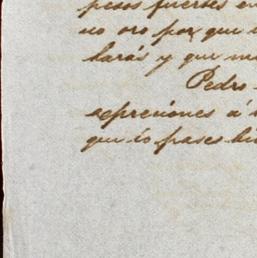 pesos fuertes en
no oro por que
larás y que
Pedro
espreciones á
que io frases